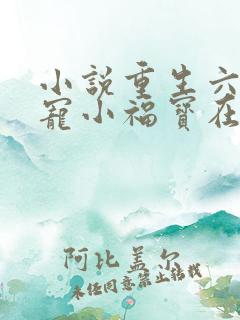 小說重生六
寵小福寶在
阿比盖尔
未经同意禁止转载